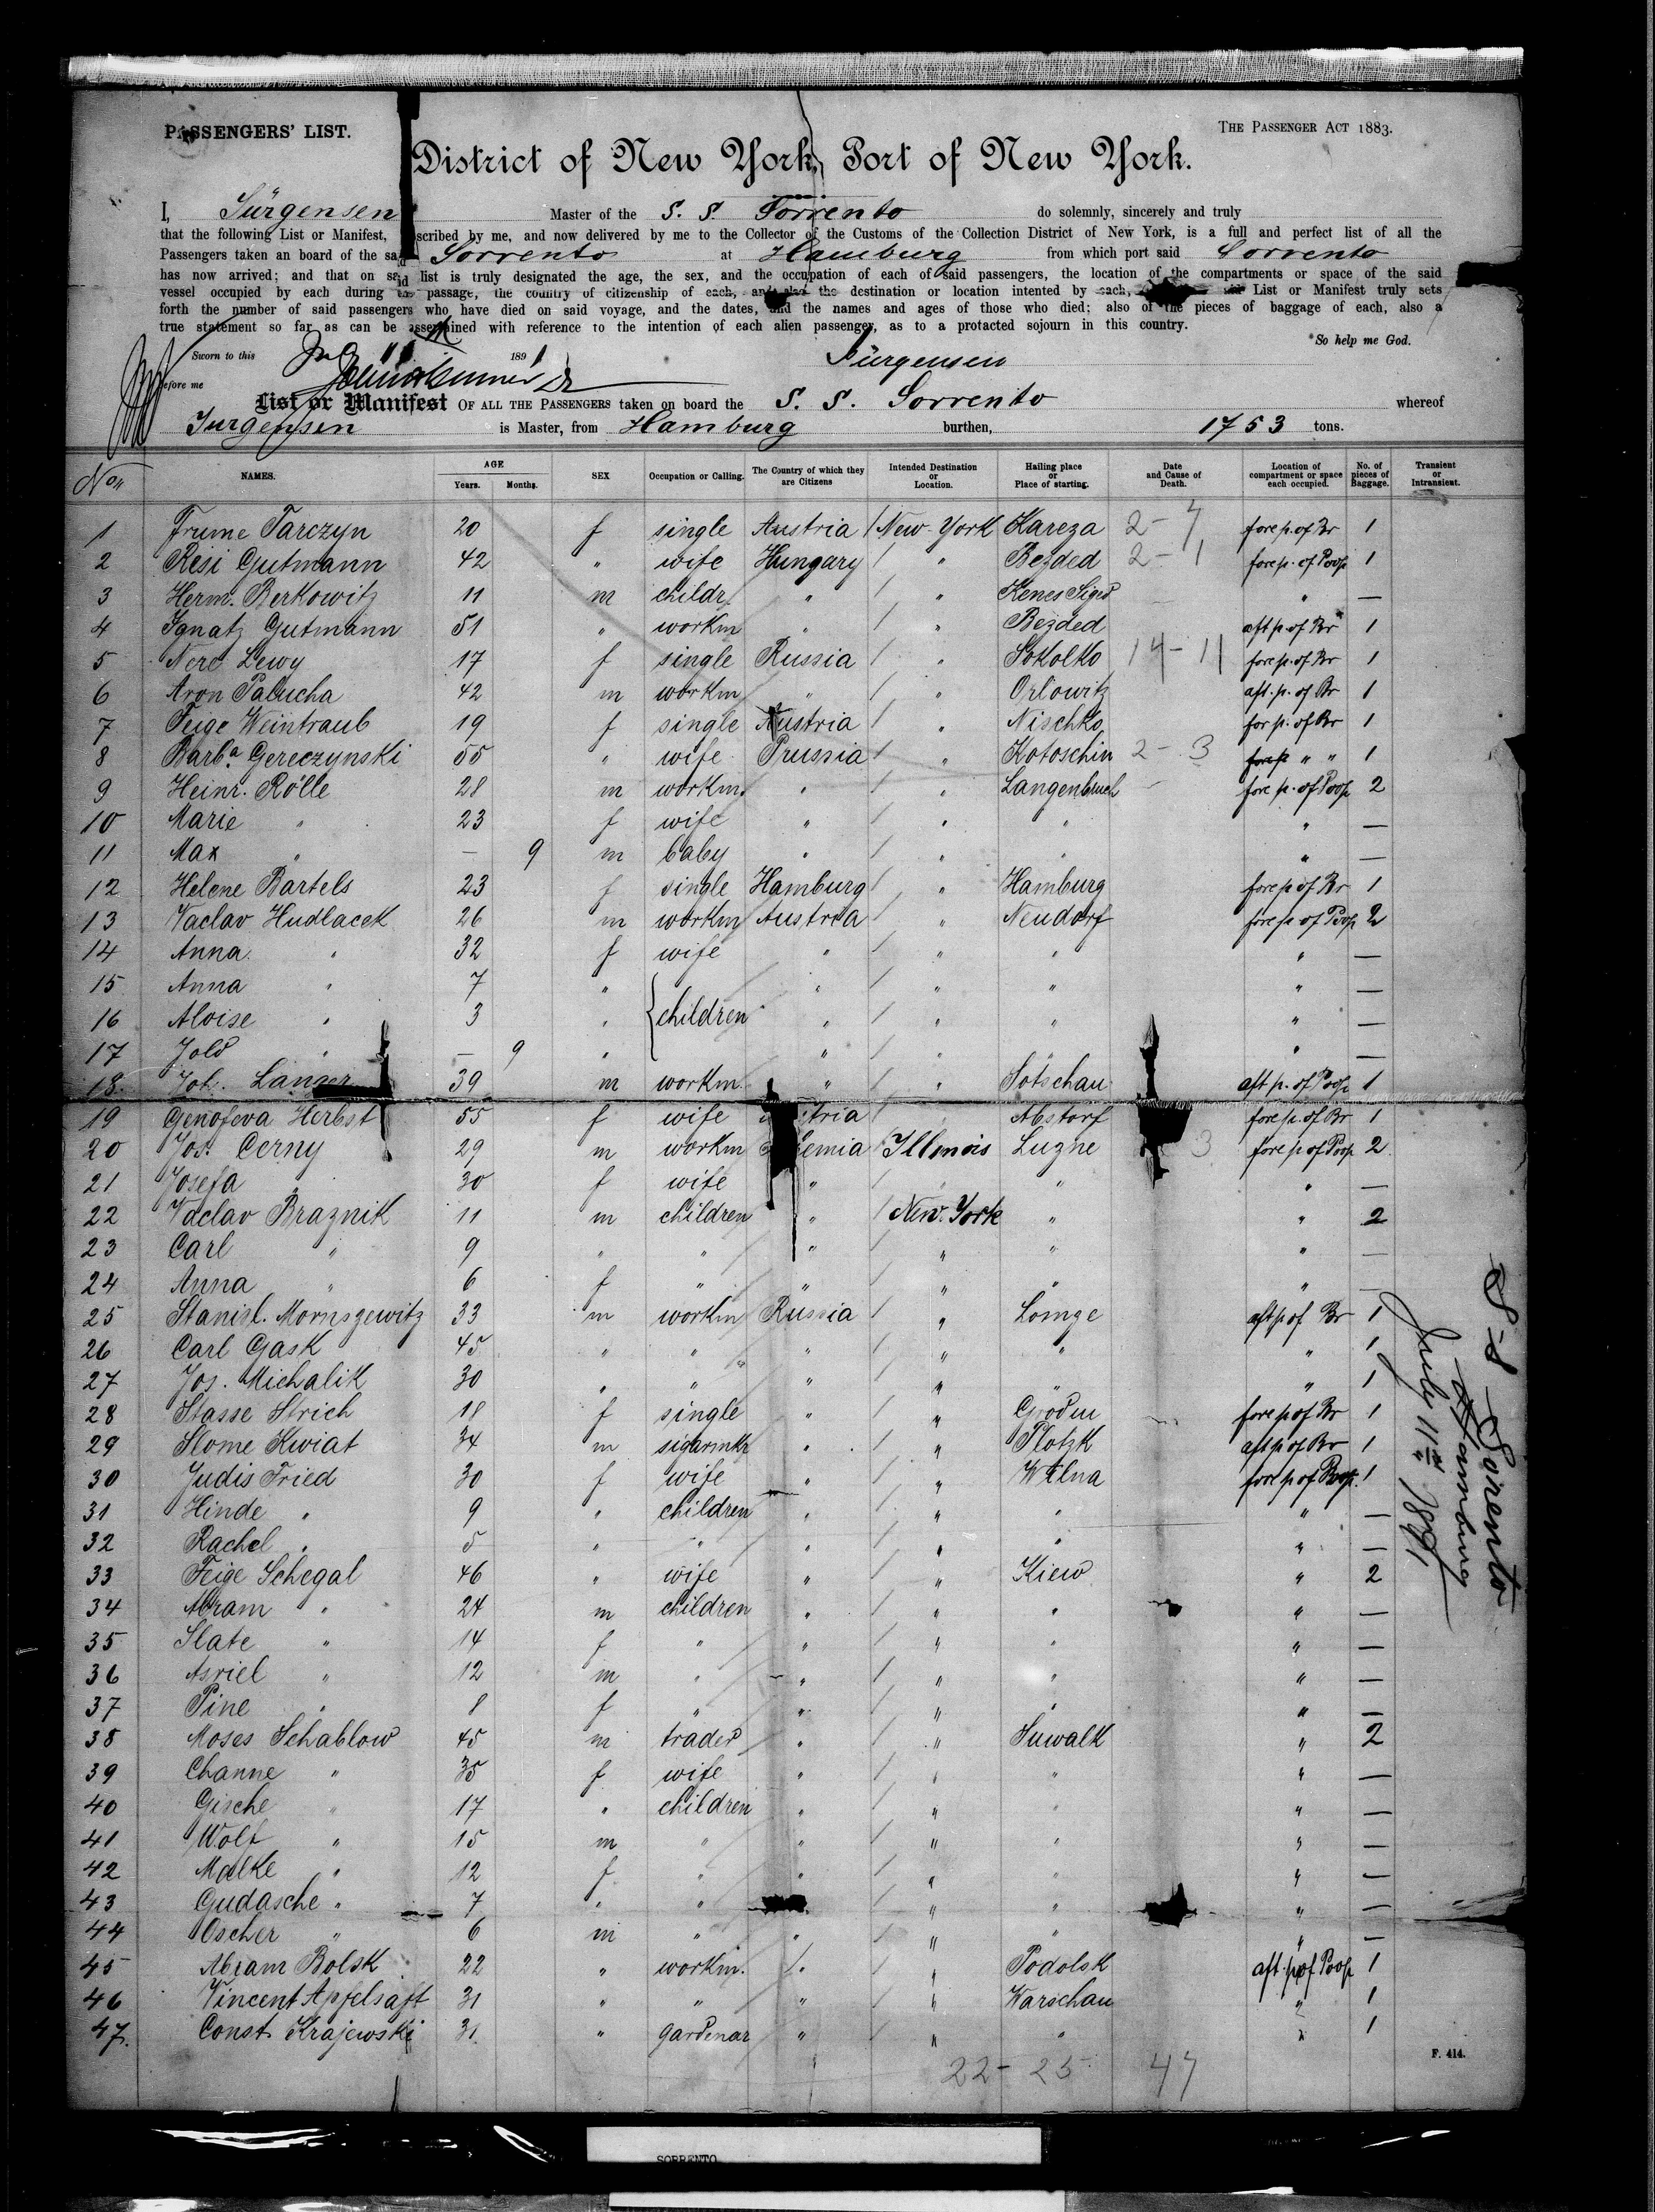 PASSENGERS' LIST.
THE PASSENGER ACT 1883.
District of New York, Port of New York.
I, Jürgensen Master of the S. S. Sorrento do solemnly, sincerely and truly
that the following List or Manifest, scribed by me, and now delivered by me to the Collector of the Customs of the Collection District of New York, is a full and perfect list of all the
Passengers taken an board of the said Sorrento at Hamburg from which port said Sorrento
has now arrived; and that on said list is truly designated the age, the sex, and the occupation of each of said passengers, the location of the compartments or space of the said
vessel occupied by each during the passage, the country of citizenship of each, and also the destination or location intented by each, List or Manifest truly sets
forth the number of said passengers who have died on said voyage, and the dates, and the names and ages of those who died; also of the pieces of baggage of each, also a
true statement so far as can be assertained with reference to the intention of each alien passenger, as to a protacted sojourn in this country.
So help me God.
Sworn to this 11 1891
Jürgensen
before me
List or Manifest OF ALL THE PASSENGERS taken on board the S. S. Sorrento whereof
Jurgensen is Master, from Hamburg burthen, 1753 tons.
No NAMES. AGE Years. Months. SEX Occupation or Calling. The Country of which they are Citizens Intended Destination or Location. Hailing place or Place of starting. Date and Cause of Death. Location of compartment or space each occupied. No. of pieces of Baggage. Transient or Intransient.
1 Frume Tarczyn 20 f single Austria / New-York Kareza 2 - 7 fore p. of Br 1
2 Resi Gutmann 42 " wife Hungary / " Bezded 2 - 1 fore p. of Poop 1
3 Herm. Berkowitz 11 m childr. " / " " —
4 Ignatz Gutmann 51 " workm " / " Bezded aft p. of Br 1
5 Lewy 17 f single Russia / " Sokolko 14 - 11 fore p. of Br 1
6 Aron Palucha 42 m workm " / " Orlowitz aft. p. of Br 1
7 Feige Weintraub 19 f single Austria / " Nischko for p. of Br 1
8 Barba. Gereczynski 55 " wife Prussia / " Kotoschin 2 - 3 " " 1
9 Heinr. Rölle 28 m workm. " / " Langenbruch fore p. of Poop 2
10 Marie " 23 f wife " / " " " —
11 Max " — 9 m baby " / " " " —
12 Helene Bartels 23 f single Hamburg / " Hamburg fore p of Br 1
13 Vaclav Hudlacek 26 m workm Austria / " Neudorf fore p of Poop 2
14 Anna " 32 f wife " / " " " —
15 Anna " 7 " " / " " " —
16 Aloise " 3 " children " / " " " —
17 " — 9 " " / " " " —
18 Joh. Langer 39 m workm. " / " Sotschau aft p. of Poop 1
19 Genofeva Herbst 55 f wife tria / Abstorf fore p. of Br 1
20 Jos. Cerny 29 m workm emia / Illinois Luzne 3 fore p of Poop 2
21 Josefa " 30 f wife " / " " —
22 Vaclav Braznik 11 m children " / New-York " " 2
23 Carl " 9 " " " / " " " —
24 Anna " 6 f " " / " " " —
25 Stanisl. Mornszewitz 33 m workm Russia / " Lomze aft p of Br 1
26 Carl Gask 45 " " " / " " " 1
27 Jos. Michalik 30 " " " / " " " 1
28 Stasse Strich 18 f single " / " Grodu fore p of Br 1
29 Slome Kwiat 34 m sigarmkr " / " Plotzk aft p of Br 1
30 Judis Fried 30 f wife " / " Wilna fore p of Poop. 1
31 Hinde " 9 " children " / " " " —
32 Rachel " 5 " " " / " " " —
33 Feige Schegal 46 " wife " / " Kiew " 2
34 Abram " 24 m children " / " " " —
35 Slate " 14 f " " / " " " —
36 Asriel " 12 m " " / " " " —
37 Pine " 8 f " " / " " " —
38 Moses Schablow 45 m trader " / " Suwalk " 2
39 Channe " 35 f wife " / " " " —
40 Gische " 17 " children " / " " " —
41 Wolf " 15 m " " / " " " —
42 Malke " 12 f " " / " " " —
43 Gudasche " 7 " " / " " " —
44 Oscher " 6 m " " / " " —
45 Abram Bolsk 22 " workm. " / " Podolsk aft. p of Poop 1
46 Vincent Apfelsaft 31 " " " / " Warschau " 1
47. Const. Krajewski 31. " gardenar " / " " " 1
22 - 25 47
F. 414.
S-S Sorento
Hamburg
July 11th 1891
SORRENTO